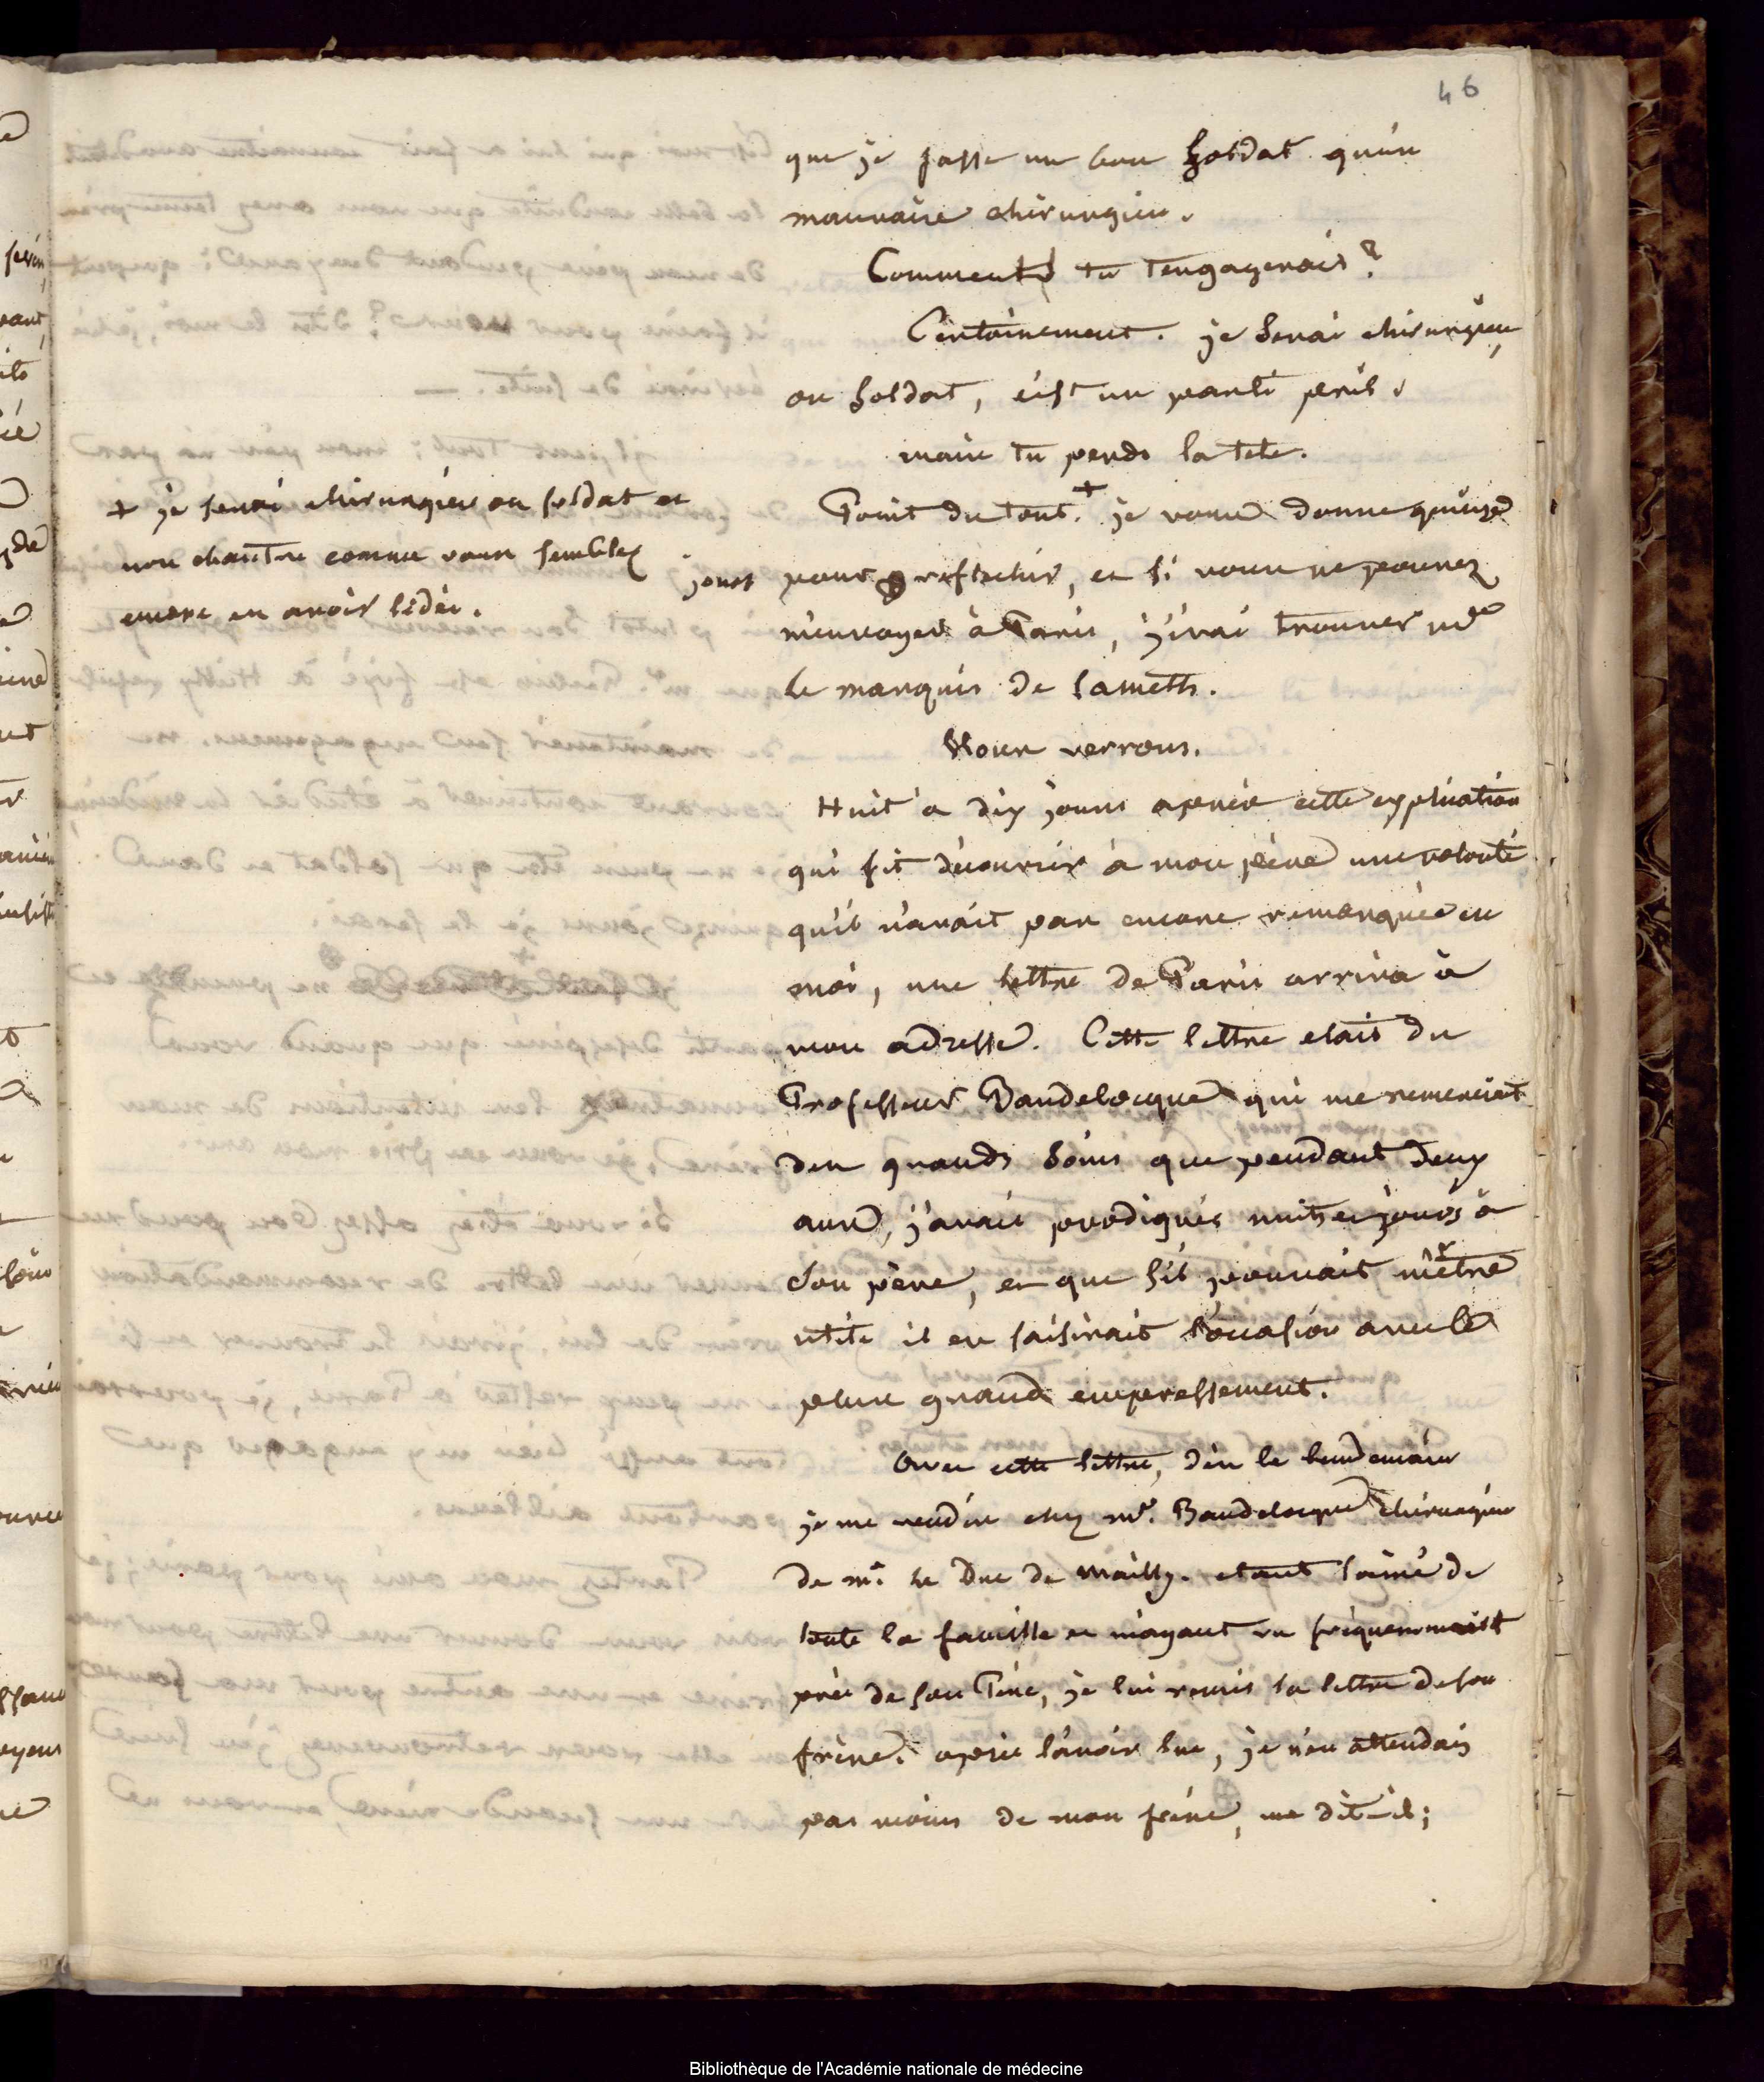 46
que je fasse un bon soldat qu'un
mauvais chirurgien.
Comment tu t'engagerais ?
Certainement. je serai chirurgien,
ou soldat, c'est un parti pris.
mais tu perds la tete.
Point du tout. + je vous donne quinze
jours pour reflechir, et si vous ne pouvez
m'envoyer à Paris, j'irai trouver mr
le marquis de Lameth.
+ je serai chirurgien ou soldat et
non chantre comme vous semblez
encore en avoir l'idée.
Nous verrons.
Huit a dix jours après cette explication
qui fit découvrir à mon père une volonté
qu'il n'avait pas encore remarquée en
moi, une lettre de Paris arriva à
mon adresse. Cette lettre etait du
Professeur Baudelocque qui me remerciait
des grands soins que pendant deux
ans, j'avais prodigués nuits et jours à
son père, et que s'il pouvait m'être
utile il en saisirait l'occasion avec le
plus grand empressement.
Avec cette lettre, dès le lendemain
je me rendis chez mr. Baudelocque chirurgien
de mr. le Duc de Mailly. etant l'aimé de
toute la famille et m'ayant vu fréquemment
près de son Père, je lui remis la lettre de son
frère. après l'avoir lue, je n'en attendais
pas moins de mon frère, me dit-il ;
Bibliothèque de l'Académie nationale de médecine